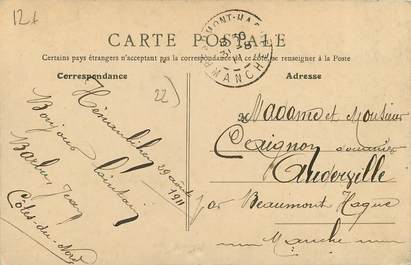 12+
CARTE POSTALE
Certains pays étrangers n'acceptant pas la correspondance de ce côté, se renseigner à la Poste
Correspondance
Adresse
BEAUMONT-HAGUE
MANCHE
22
Hénanbihen
29 août
1911
Bonjour lointain
Barbu Jean
Côtes-du-Nord
Madame et Monsieur
douanier
Auderville
par Beaumont Hague
Manche